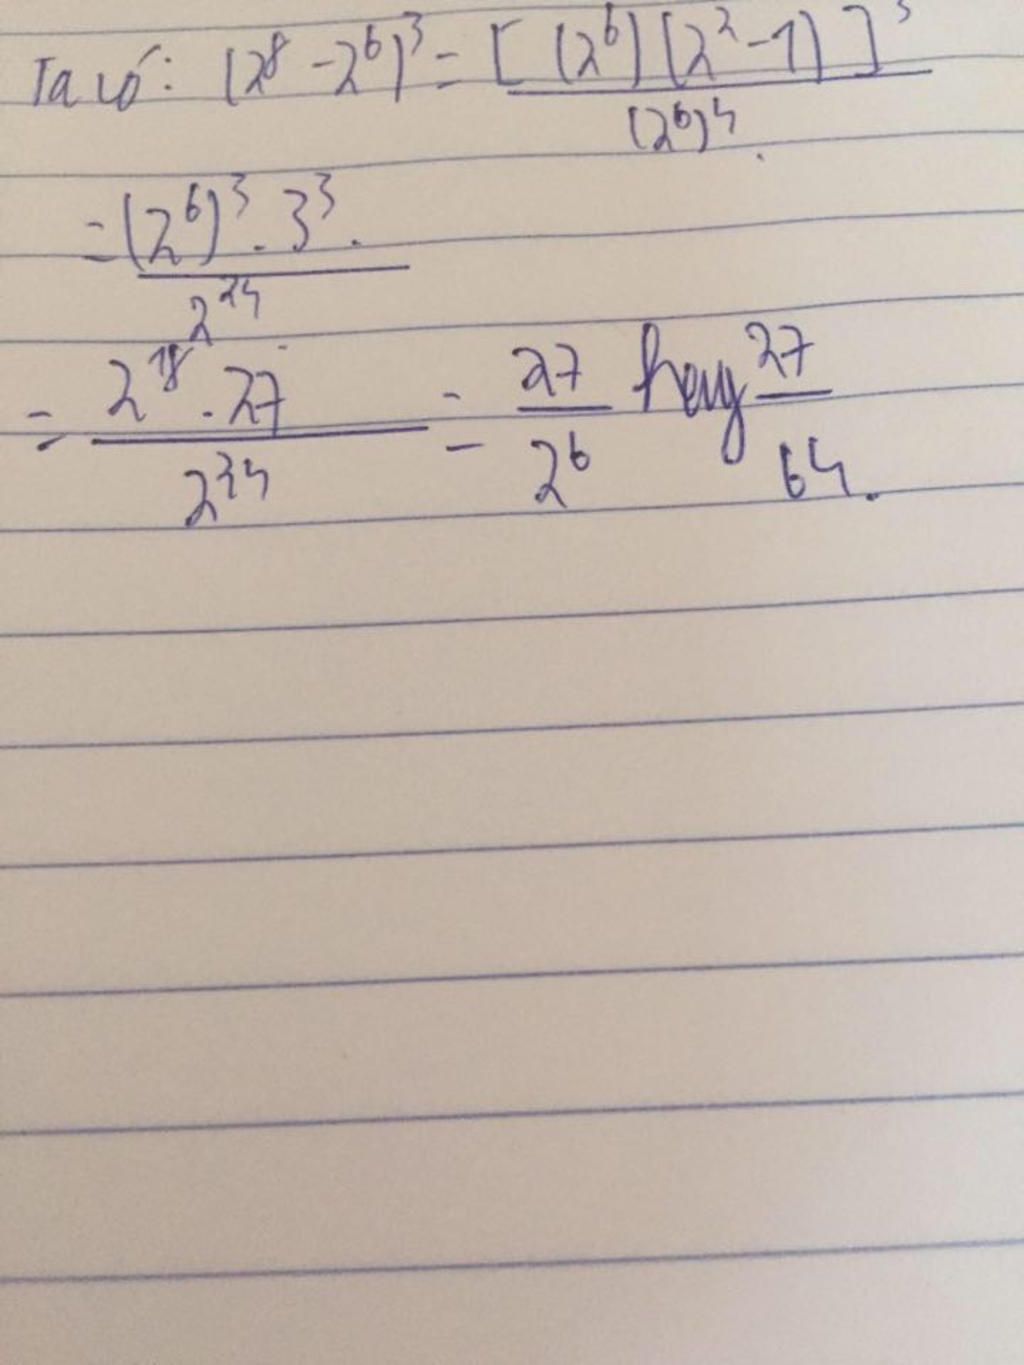 Ta có: (2⁸ - 2⁶)³ = [ (2⁶) (2² - 1) ]³ / (2⁶)⁴.
= (2⁶)³ . 3³ . / 2²⁴
= 2¹⁸ . 27 / 2²⁴ = 27 / 2⁶ hay 27 / 64.